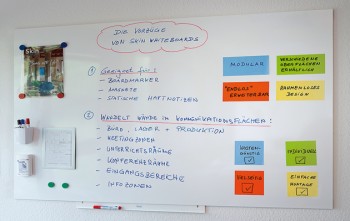 DIE VORZÜGE
VON SKIN WHITEBOARDS
① Geeignet für:
- BOARDMARKER
- MAGNETE
- STATISCHE HAFTNOTIZEN
MODULAR
VERSCHIEDENE
OBERFLÄCHEN
ERHÄLTLICH
"ENDLOS"
ERWEITERBAR
RAHMENLOSES
DESIGN
② WANDELT WÄNDE IN KOMMUNIKATIONSFLÄCHEN:
- BÜRO, LAGER + PRODUKTION
- MEETINGZONEN
- UNTERRICHTSRÄUME
- KONFERENZRÄUME
- EINGANGSBEREICHE
- INFOZONEN
KOSTEN-
GÜNSTIG
INDIVIDUELL
VIELSEITIG
EINFACHE
MONTAGE